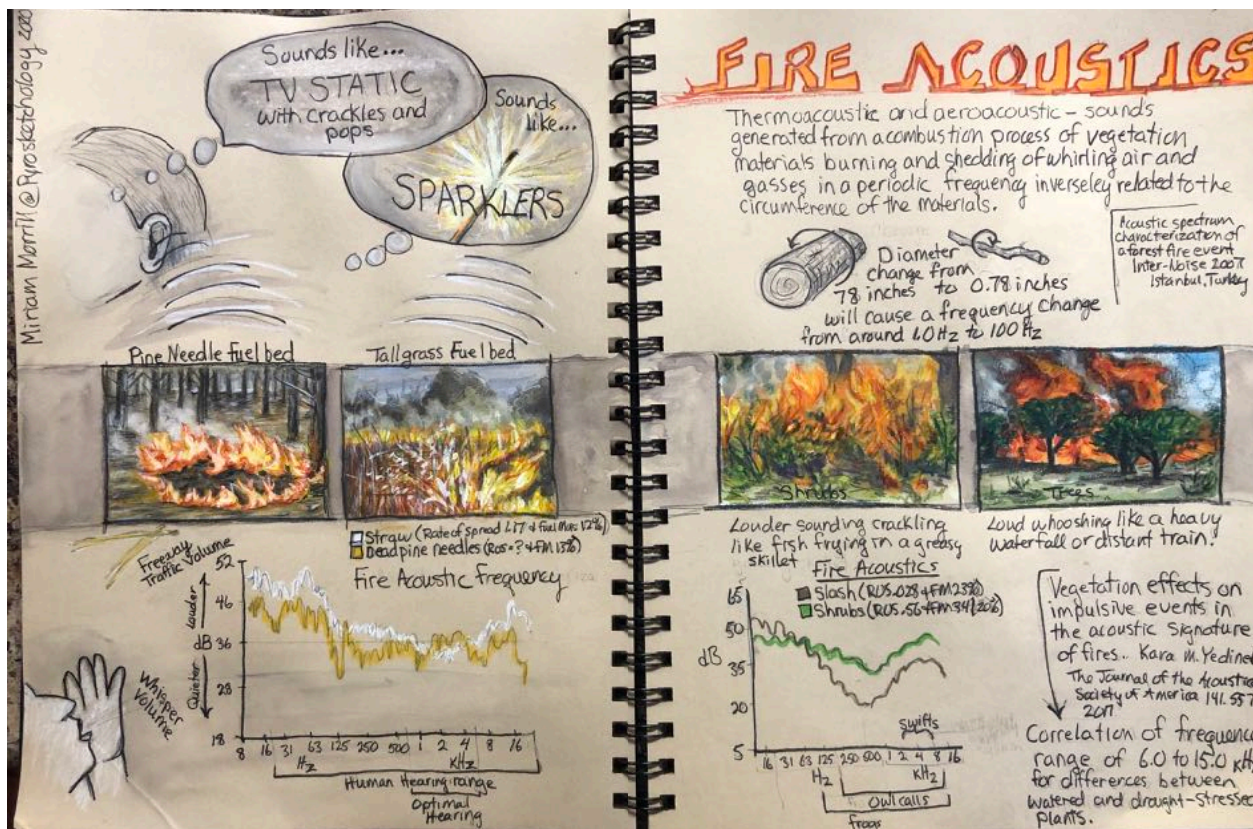 Miriam Morrill @Pyrosketchology 2020
Sounds like...
TV STATIC
with crackles and
pops
Sounds
like...
SPARKLERS
Pine Needle Fuel bed
Tallgrass Fuel bed
Straw (Rate of Spread 1.17 & Fuel Mois. 12%)
Dead pine needles (ROS=? & FM 13%)
Fire Acoustic frequency
Freeway
Traffic Volume
Louder
dB
Quieter
Whisper
Volume
52
46
36
28
18
8 16 31 63 125 250 500 1 2 4 8 16
Hz
KHz
Human Hearing range
Optimal
Hearing
FIRE ACOUSTICS
Thermoacoustic and aeroacoustic - sounds
generated from a combustion process of vegetation
materials burning and shedding of whirling air and
gasses in a periodic frequency inverseley related to the
circumference of the materials.
Acoustic spectrum
characterization of
a forest fire event
Inter-Noise
Istanbul, Turkey
Diameter
change from
78 inches to 0.78 inches
will cause a frequency change
from around 1.0 Hz to 100 Hz
Shrubs
Trees
Louder sounding crackling
like fish frying in a greasy
skillet
Loud whooshing like a heavy
waterfall or distant train.
Fire Acoustics
Slash (ROS .028 & FM 23%)
Shrubs (ROS .56 & FM 34/20%)
65
50
dB
35
20
5
swifts
16 31 63 125 250 500 1 2 4 8 16
Hz
KHz
Owl calls
frogs
Vegetation effects on
impulsive events in
the acoustic signature
of fires.. Kara M. Yedinek
The Journal of the Acoustical
Society of America 141.557
2017
Correlation of frequency
range of 6.0 to 15.0 kHz
for differences between
watered and drought-stressed
plants.